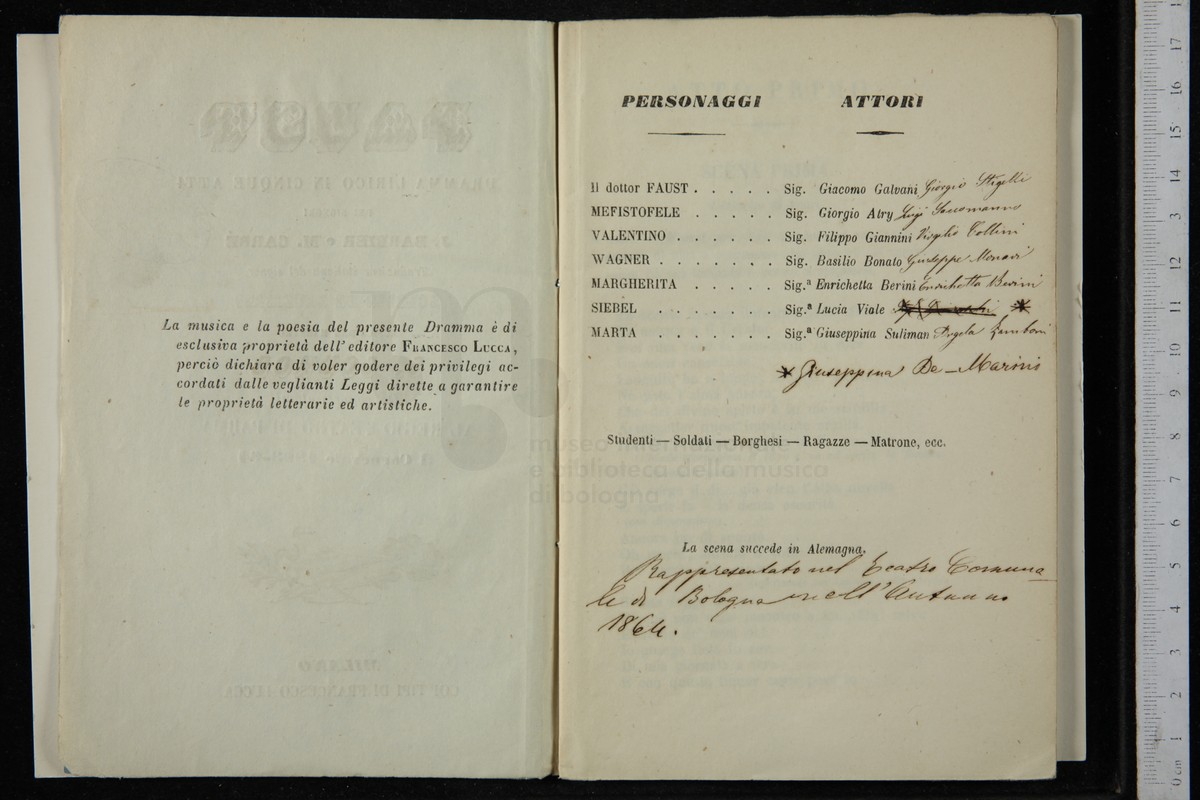 La musica e la poesia del presente Dramma è di
esclusiva proprietà dell' editore Francesco Lucca,
perciò dichiara di voler godere dei privilegi ac-
cordati dalle veglianti Leggi dirette a garantire
le proprietà letterarie ed artistiche.
PERSONAGGI ATTORI
Il dottor FAUST . . . . . Sig. Giacomo Galvani Giorgio Stigelli
MEFISTOFELE . . . . . Sig. Giorgio Atry Luigi
VALENTINO . . . . . . Sig. Filippo Giannini Virgilio Collini
WAGNER . . . . . . . Sig. Basilio Bonato Giuseppe Monari
MARGHERITA . . . . . Sig.ª Enrichetta Berini Enrichetta Berini
SIEBEL . . . . . . . Sig.ª Lucia Viale
MARTA . . . . . . . Sig.ª Giuseppina Suliman Angela Zamboni
Giuseppina De-Marini
Studenti — Soldati — Borghesi — Ragazze — Matrone, ecc.
La scena succede in Alemagna.
Rappresentato nel Teatro Comuna
le di Bologna nell' Autunno
1864.
museo internazionale
e biblioteca della musica
di bologna